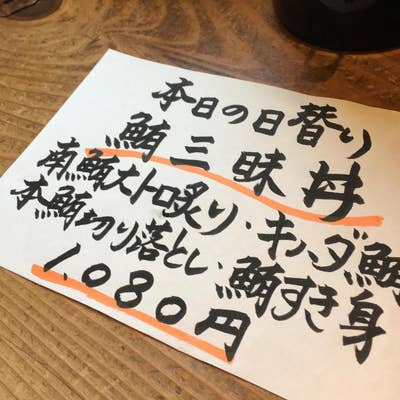 本日の日替り
鮪三昧丼
南鮪大トロ炙り・キハダ鮪
本鮪切り落とし・鮪すき身
1,080円